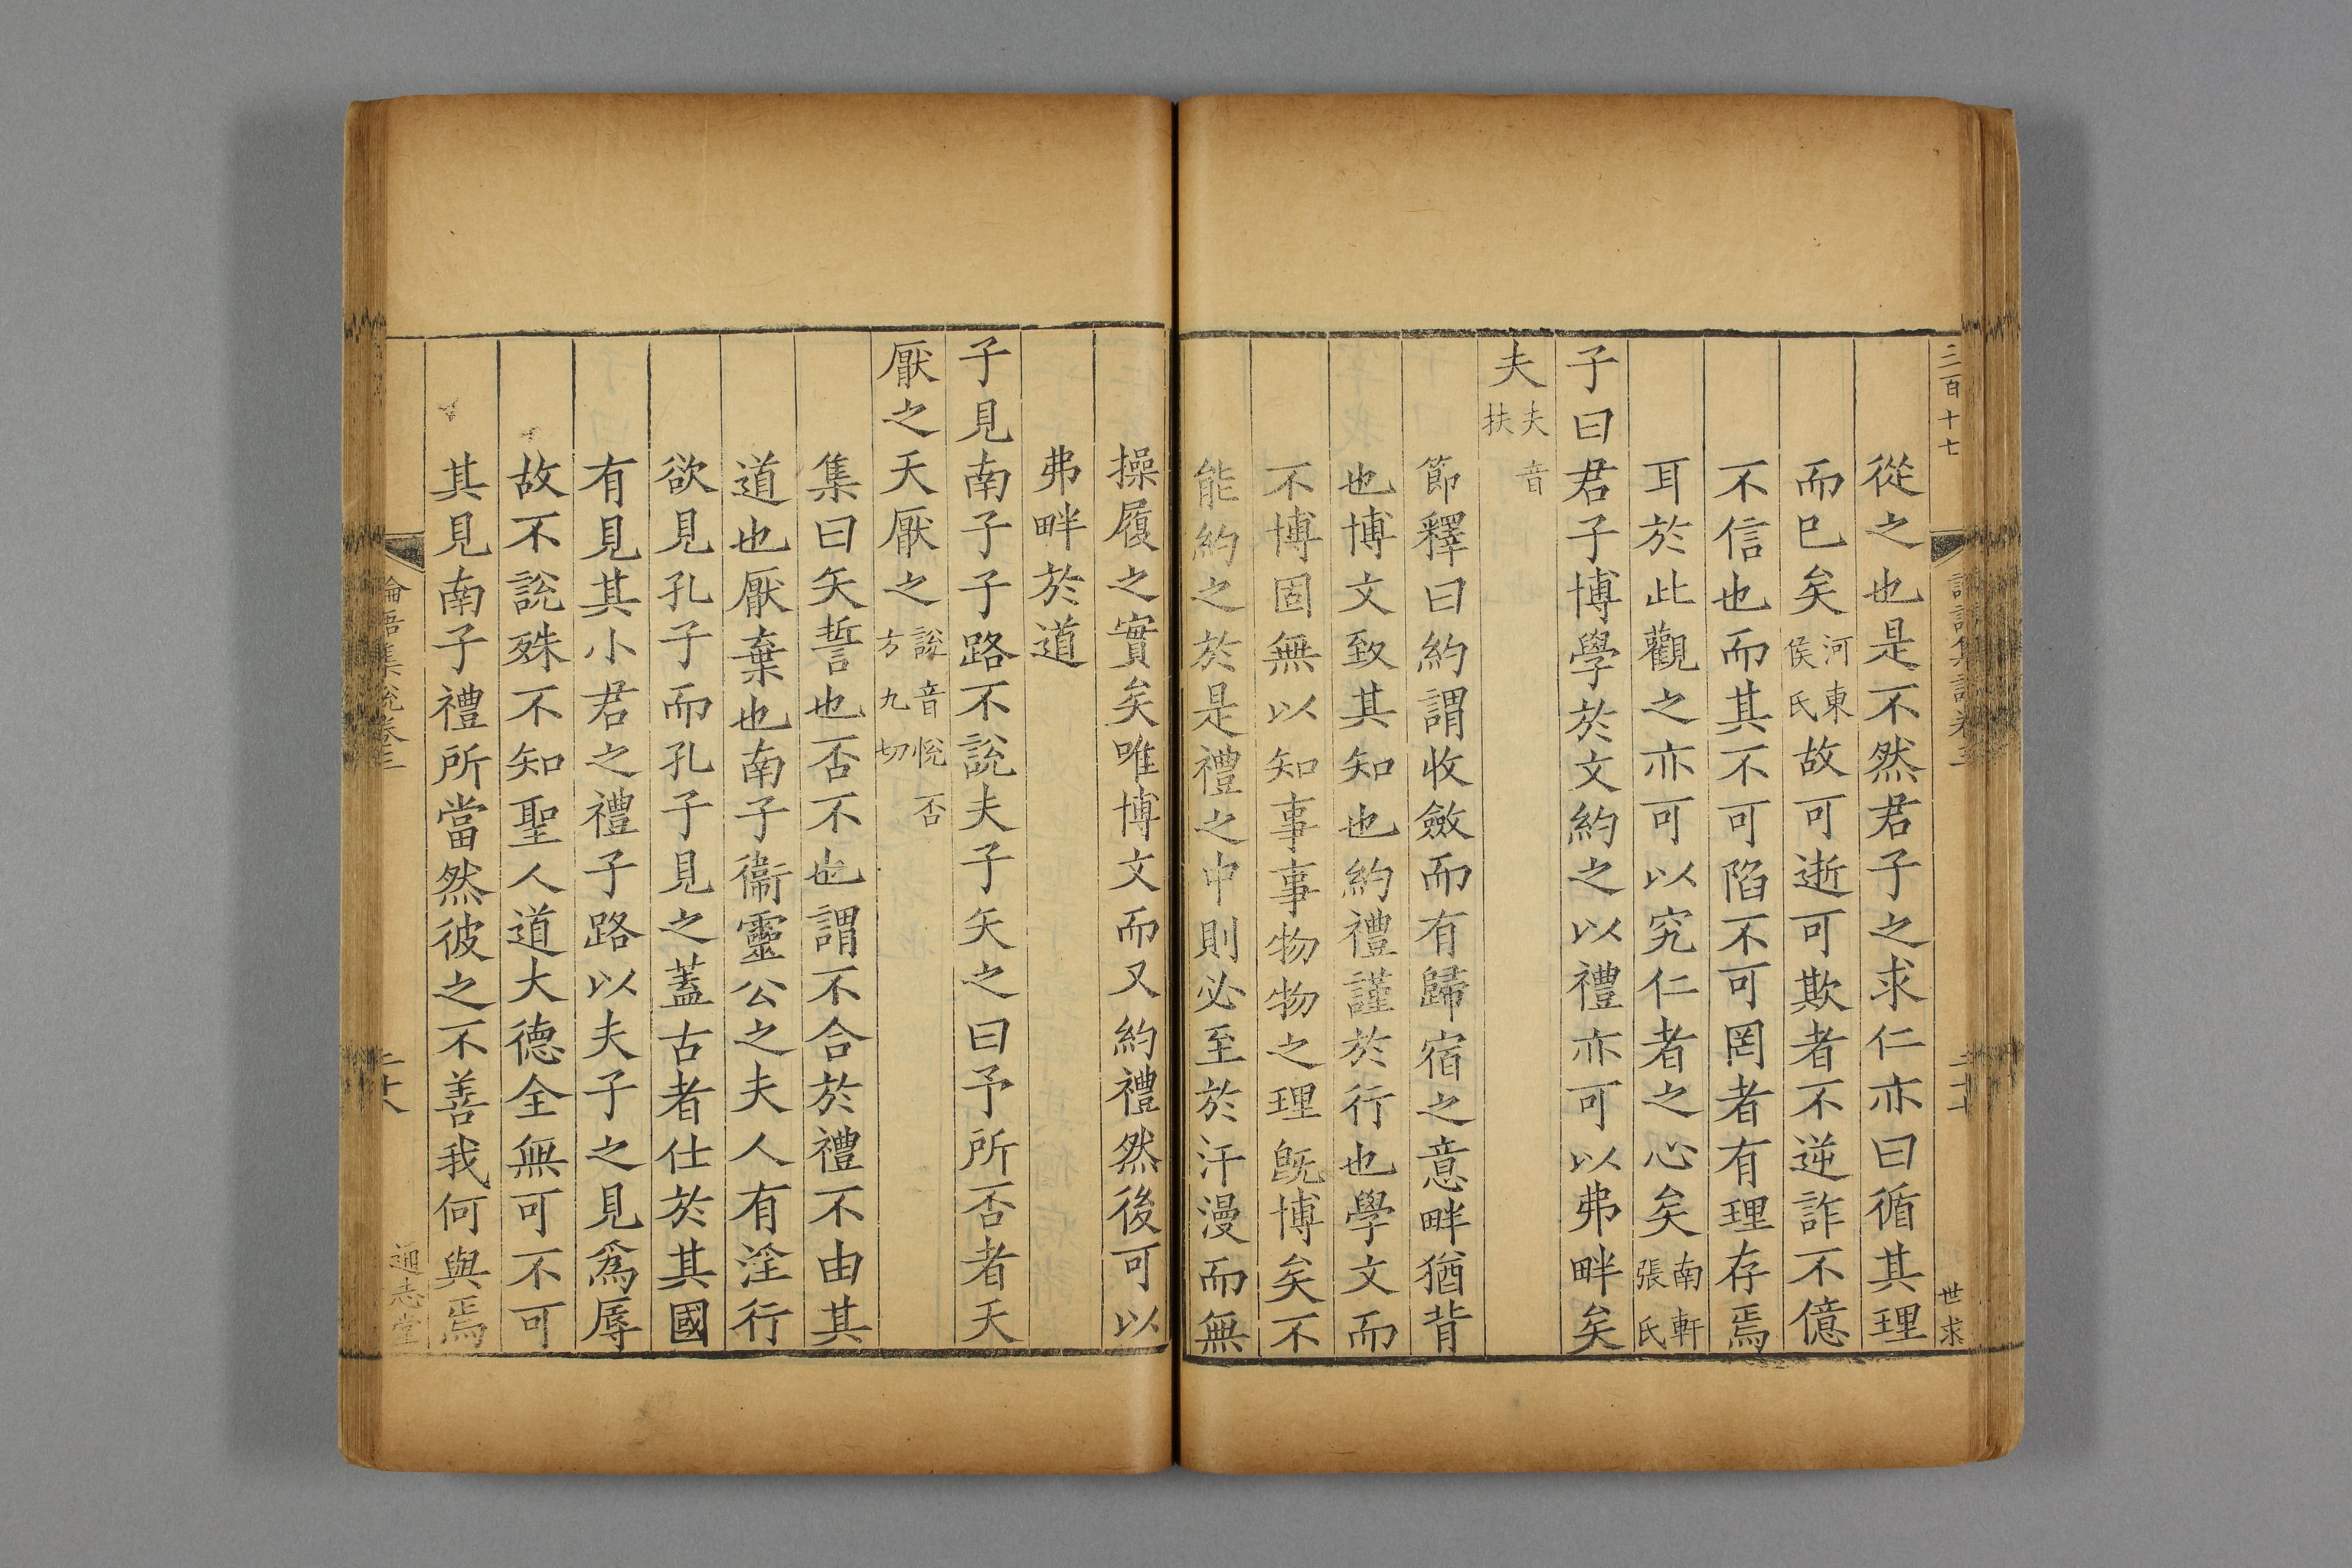 三百十七
世求
從之也是不然君子之求仁亦曰循其理
而巳矣河東侯氏故可逝可欺者不逆詐不億
不信也而其不可陷不可罔者有理存焉
耳於此觀之亦可以究仁者之心矣南軒張氏
子曰君子博學於文約之以禮亦可以弗畔矣
夫夫音扶
節釋曰約謂收斂而有歸宿之意畔猶背
也博文致其知也約禮謹於行也學文而
不博固無以知事事物物之理旣博矣不
能約之於是禮之中則必至於汗漫而無
操履之實矣唯博文而又約禮然後可以
弗畔於道
子見南子子路不說夫子矢之曰予所否者天
厭之天厭之說音悅否方九切
集曰矢誓也否不也謂不合於禮不由其
道也厭棄也南子衞靈公之夫人有淫行
欲見孔子而孔子見之蓋古者仕於其國
有見其小君之禮子路以夫子之見爲辱
故不說殊不知聖人道大德全無可不可
其見南子禮所當然彼之不善我何與焉
論語集說卷三
二十八
通志堂